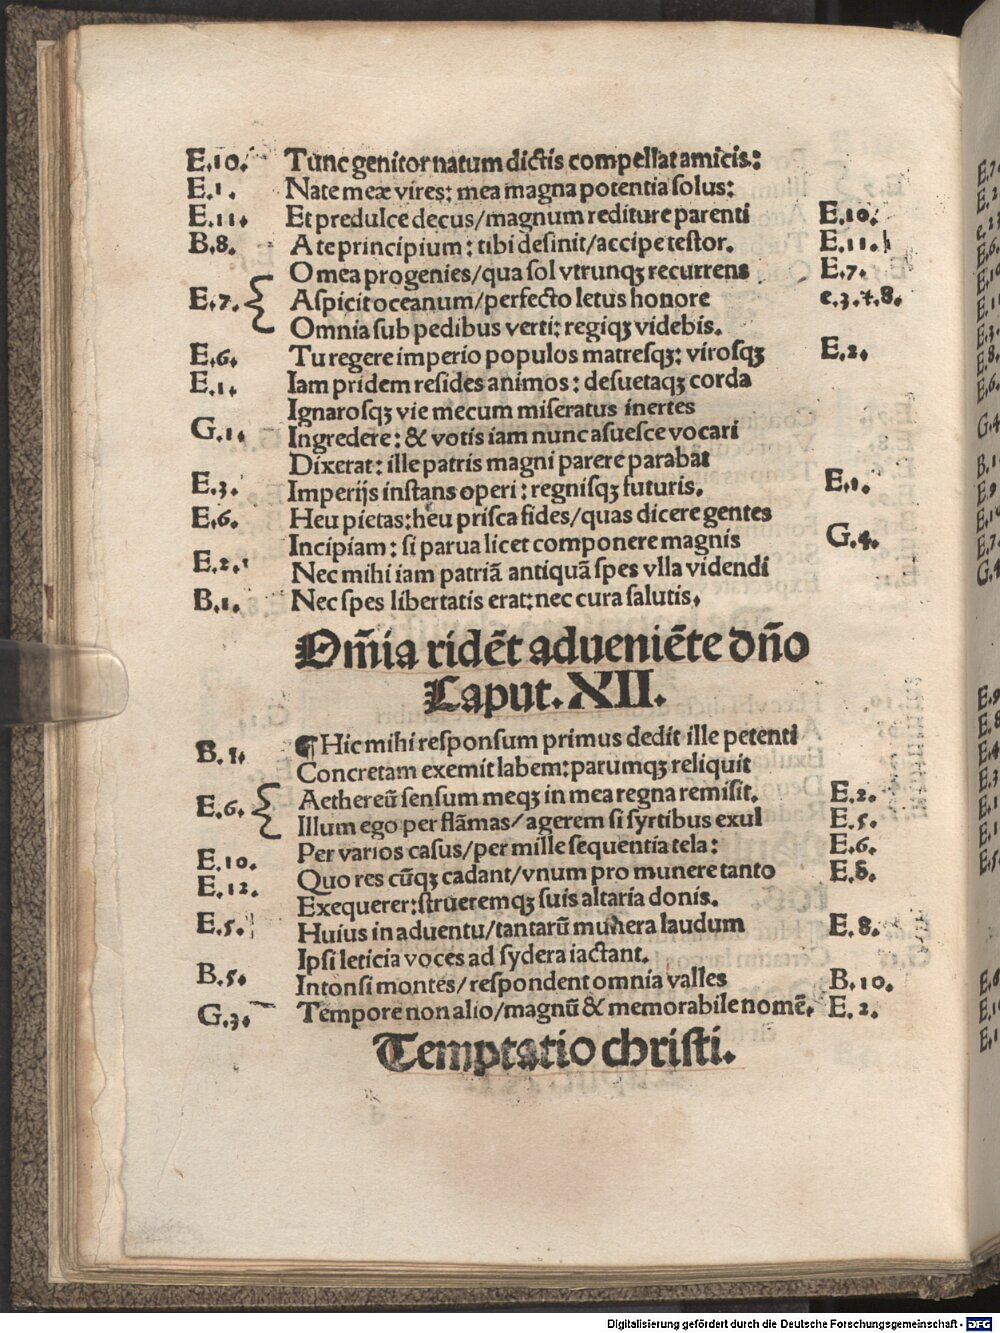 E.10. Tunc genitor natum dictis compellat amicis:
E.1. Nate meæ vires: mea magna potentia solus:
E.11. Et predulce decus/magnum rediture parenti E.10.
B.8. A te principium: tibi desinit/accipe testor. E.11.
O mea progenies/qua sol vtrunqꝫ recurrens E.7.
E.7. Aspicit oceanum/perfecto letus honore e.3.7.8.
Omnia sub pedibus verti: regiqꝫ videbis.
E.6. Tu regere imperio populos matresqꝫ: virosqꝫ E.2.
E.1. Iam pridem resides animos: desuetaqꝫ corda
Ignarosqꝫ vie mecum miseratus inertes
G.1. Ingredere: & votis iam nunc asuesce vocari
Dixerat: ille patris magni parere parabat
E.3. Imperijs instans operi: regnisqꝫ futuris. E.1.
E.6. Heu pietas: heu prisca fides/quas dicere gentes
Incipiam: si parua licet componere magnis G.4.
E.2. Nec mihi iam patriā antiquā spes vlla videndi
B.1. Nec spes libertatis erat: nec cura salutis.
Om̄ia ridēt adueniēte dño
Caput. XII.
B.1. ¶ Hic mihi responsum primus dedit ille petenti
Concretam exemit labem: parumqꝫ reliquit
Aethereū sensum meqꝫ in mea regna remisit. E.2.
E.6. Illum ego per flāmas/agerem si syrtibus exul E.5.
Per varios casus/per mille sequentia tela: E.6.
E.10. Quo res cūqꝫ cadant/vnum pro munere tanto E.8.
E.12. Exequerer: strueremqꝫ suis altaria donis.
E.5. Huius in aduentu/tantarū munera laudum E.8.
Ipsi leticia voces ad sydera iactant.
B.5. Intonsi montes/respondent omnia valles B.10.
G.3. Tempore non alio/magnū & memorabile nomē. E.2.
Temptatio christi.
Digitalisierung gefördert durch die Deutsche Forschungsgemeinschaft - DFG